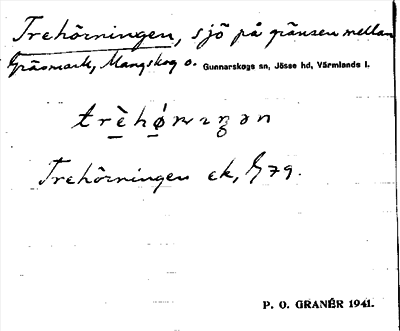 Trehörningen, sjö på gränsen mellan
Gräsmark, Mangskog o. Gunnarskogs sn, Jösse hd, Värmlands l.
Trehörningen ek, G79.
P. O. GRANÉR 1941.